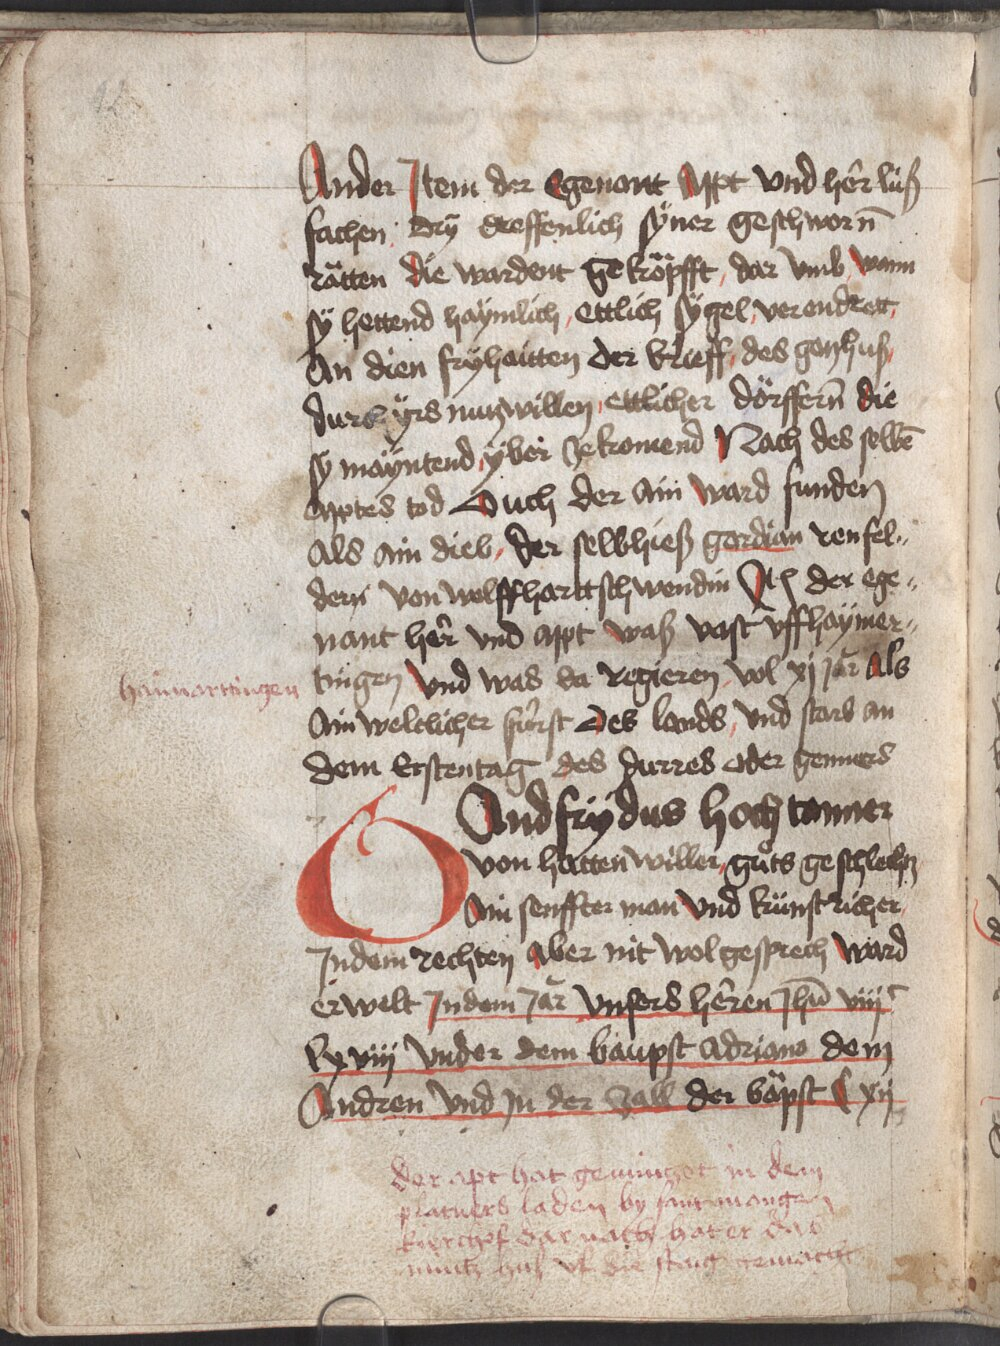 Ander Jtem der Egenant Appt vnd hêr lüß
sachen dry dreffenlich syner geschworn̄
rätten die wardent geköpfft dar vmb wann
sy hettend haymlich ettlich sygel verendrett
An dien fryhaitten der brieff des gotzhuß
durch yrs nutz willen ettlicher dörffern̄ die
sy mayntend yber zekomend Nach des selbē
apptes tod Ouch der ain ward funden
Als ain dieb der selb hieß gordian renfel„
dern von wolffhartschwendin der ege„
nant hêr vnd appt waß vast vff haymer„
haimarttingen
tingen vnd was da regieren wol xj Jăr als
Ain weltlicher fürst des lands vnd starb an
dem Ersten tag des durres oder genners
Gandfrydus hoch tanner
von hatten willer gůts geschlechtz
Ain senffter man vnd künstricher
Jndem rechten Aber nit wolgesprech ward
erwelt Jndem Jăr vnsers hêren Jhū viiij c
lxviij vnder dem baupst Adriano dem
Andren vnd jn der Zall der bäpst C xij
der apt hat gemüntzet in dem
platners laden by sant mangen
kirchof dar nach hat er das
müntz huß vf die staig gemacht